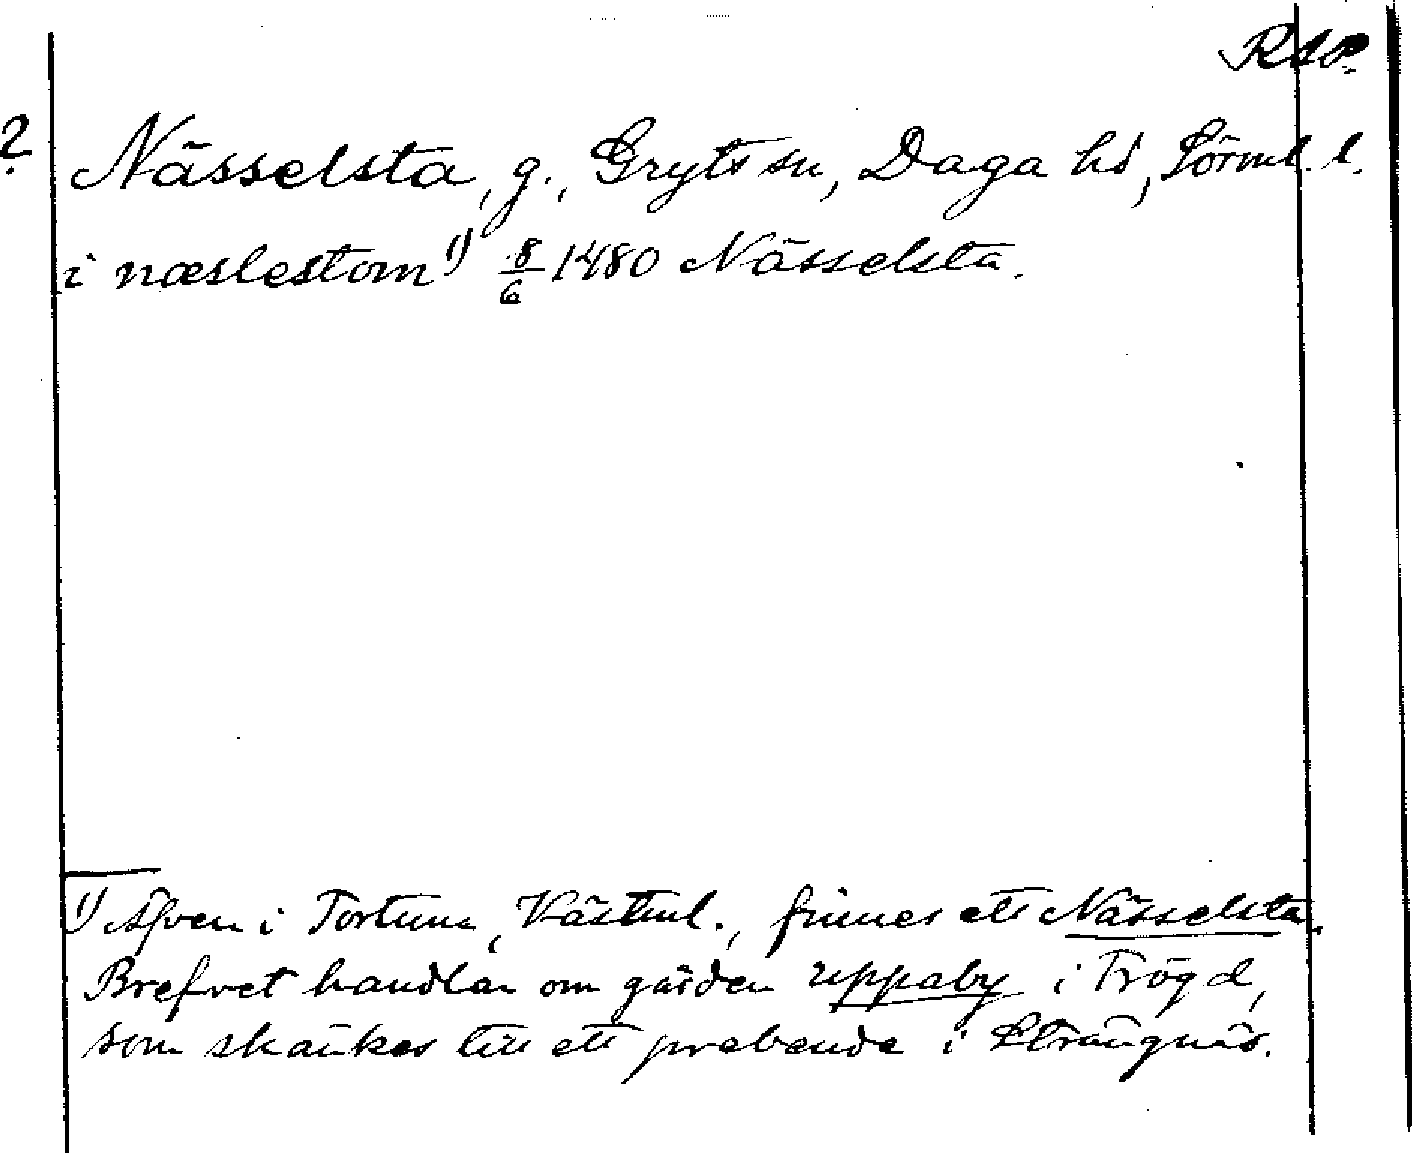 RAP
? Nässelsta, g., Gryts sn, Daga hd, Sörml. l.
i næslestom 1) 8/6 1480 Nässelsta.
1) Äfven i Tortuna, Västml., finnes ett Nässelsta.
Brefvet handlar om gården uppaby i Trögd,
som skänkes till ett prebende i Strängnäs.